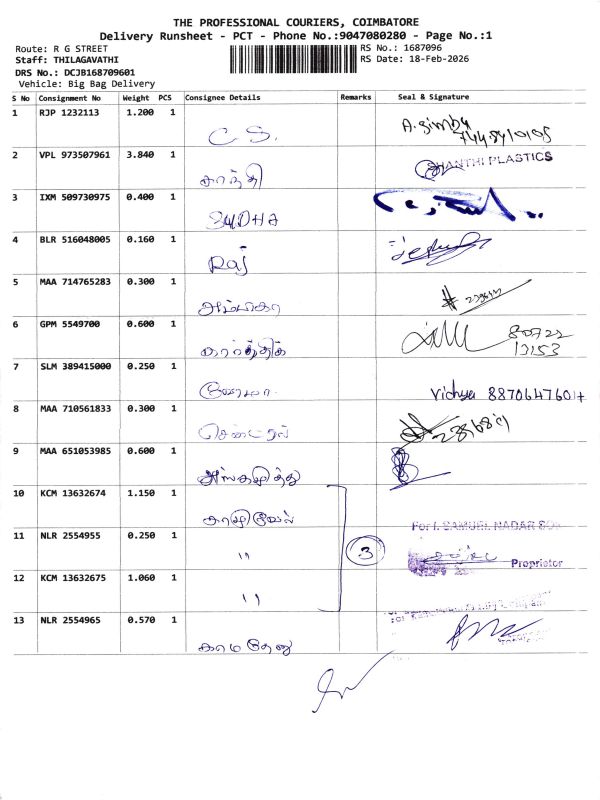 THE PROFESSIONAL COURIERS, COIMBATORE
Delivery Runsheet - PCT - Phone No.:9047080280 - Page No.:1
Route: R G STREET
Staff: THILAGAVATHI
DRS No.: DCJB168709601
Vehicle: Big Bag Delivery
RS No.: 1687096
RS Date: 18-Feb-2026
S No Consignment No Weight PCS Consignee Details Remarks Seal & Signature
1 RJP 1232113 1.200 1 C.S.
2 VPL 973507961 3.840 1 காந்தி SHANTHI PLASTICS
3 IXM 509730975 0.400 1 SUDHA
4 BLR 516048005 0.160 1 Raj
5 MAA 714765283 0.300 1 அம்பிகா
6 GPM 5549700 0.600 1 கார்த்திக் 80722
13153
7 SLM 389415000 0.250 1 Vidhya 8870647601
8 MAA 710561833 0.300 1 சென்ட்ரல்
9 MAA 651053985 0.600 1
10 KCM 13632674 1.150 1
For I. SAMUEL NADAR
11 NLR 2554955 0.250 1 " 3
Proprietor
12 KCM 13632675 1.060 1 "
13 NLR 2554965 0.570 1 காமதேனு